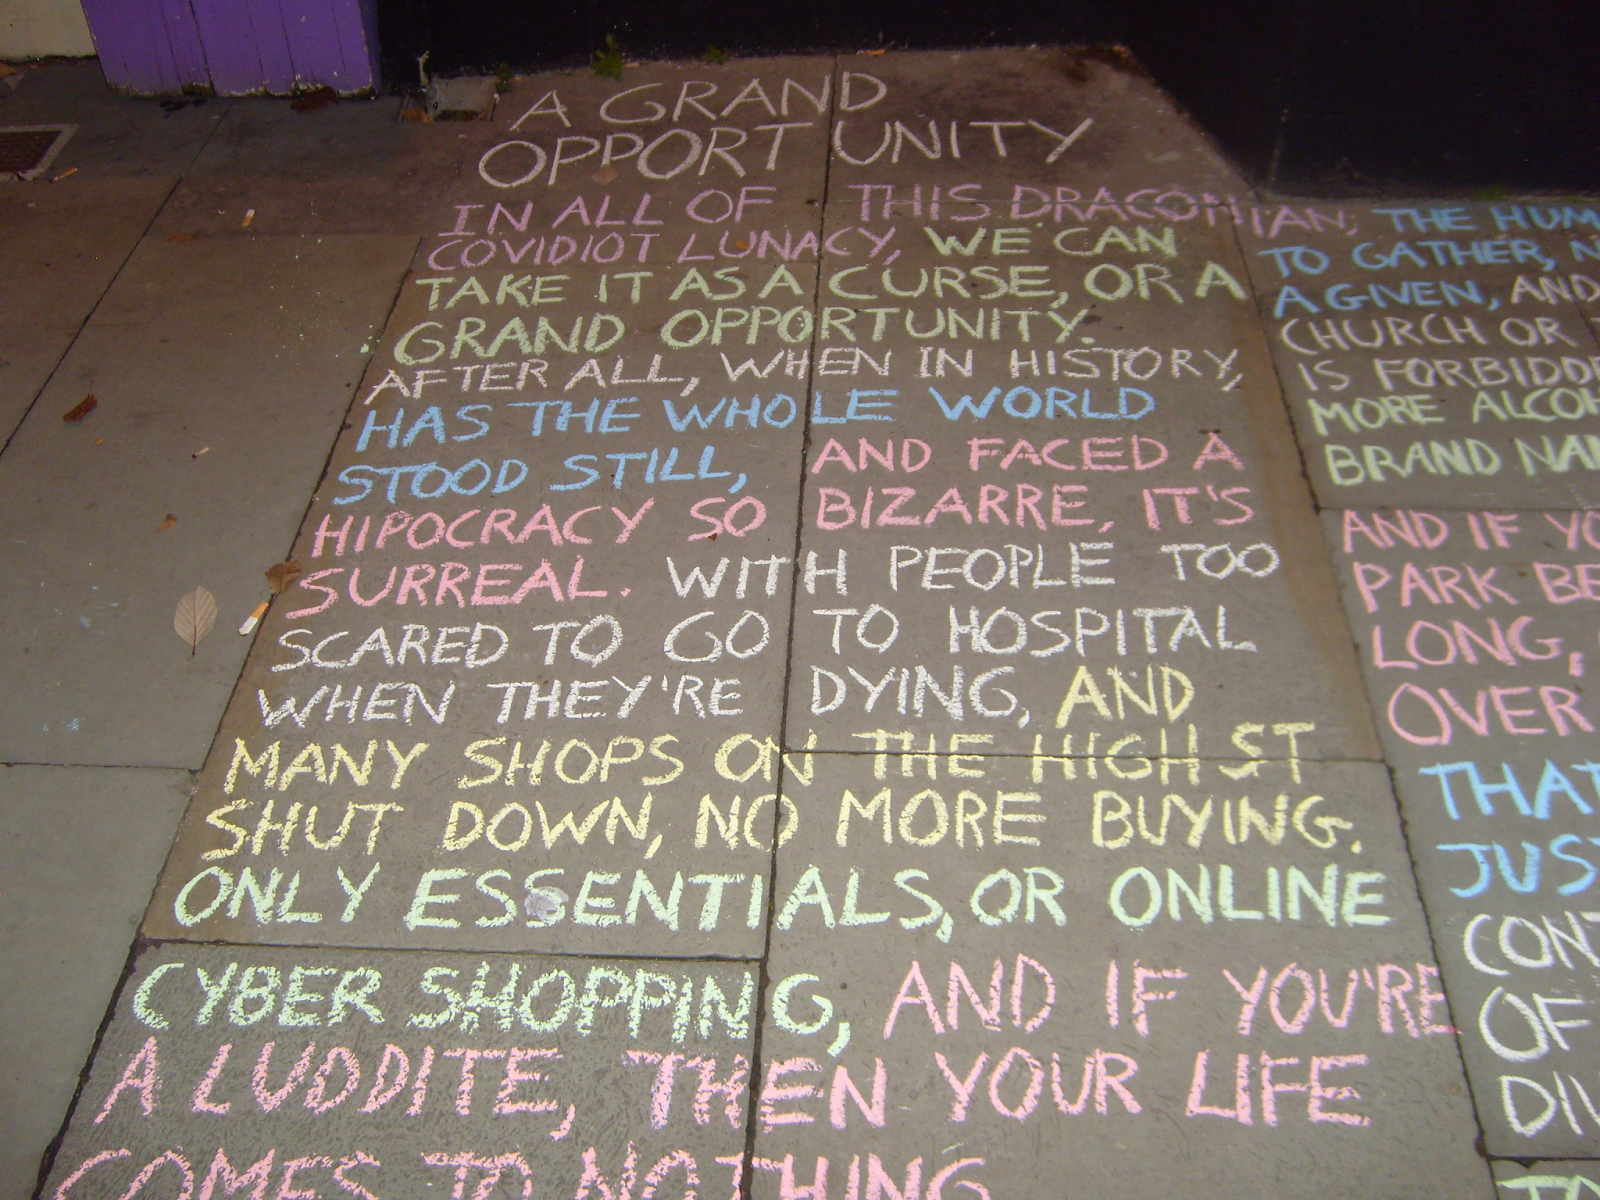 A GRAND
OPPORTUNITY
IN ALL OF THIS DRACONIAN,
COVIDIOT LUNACY, WE CAN
TAKE IT AS A CURSE, OR A
GRAND OPPORTUNITY.
AFTER ALL, WHEN IN HISTORY,
HAS THE WHOLE WORLD
STOOD STILL, AND FACED A
HIPOCRACY SO BIZARRE, IT'S
SURREAL. WITH PEOPLE TOO
SCARED TO GO TO HOSPITAL
WHEN THEY'RE DYING, AND
MANY SHOPS ON THE HIGH ST
SHUT DOWN, NO MORE BUYING.
ONLY ESSENTIALS, OR ONLINE
CYBER SHOPPING, AND IF YOU'RE
A LUDDITE, THEN YOUR LIFE
COMES TO NOTHING
THE
TO GATHER,
A GIVEN, AND
CHURCH OR
IS
MORE
BRAND
AND IF
PARK
LONG,
OVER
OF